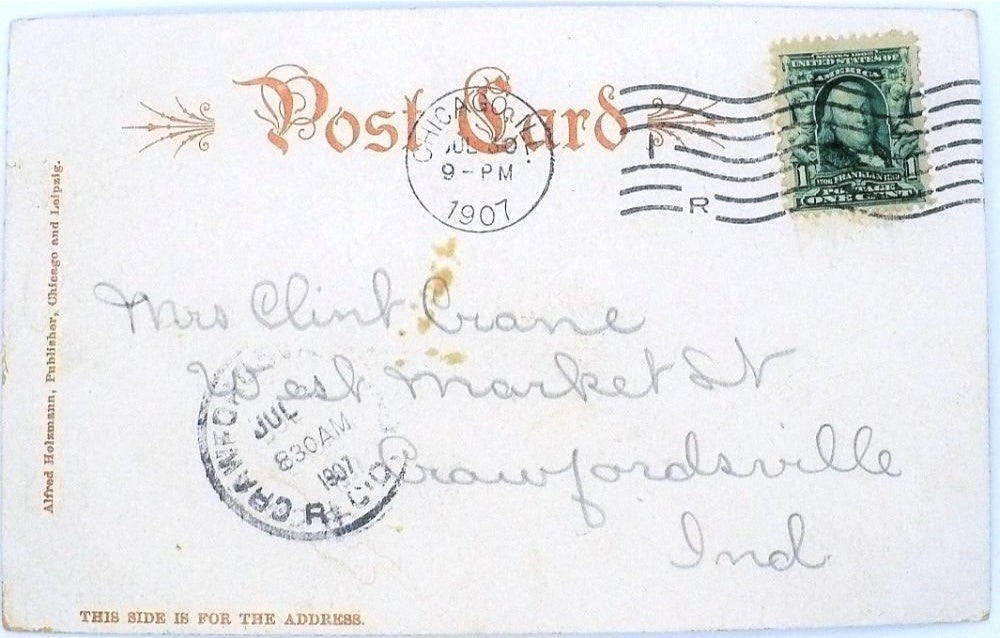 Post Card
CHICAGO, ILL.
JUL 30
9-PM
1907
R
SERIES 1902
UNITED STATES OF
AMERICA
1 FRANKLIN 1
POSTAGE
ONE CENT
Alfred Holzmann, Publisher, Chicago and Leipzig.
Mrs Clint Crane
West Market St
Crawfordsville
Ind
CRAWFO
JUL
830AM
1907
REC'D.
THIS SIDE IS FOR THE ADDRESS.